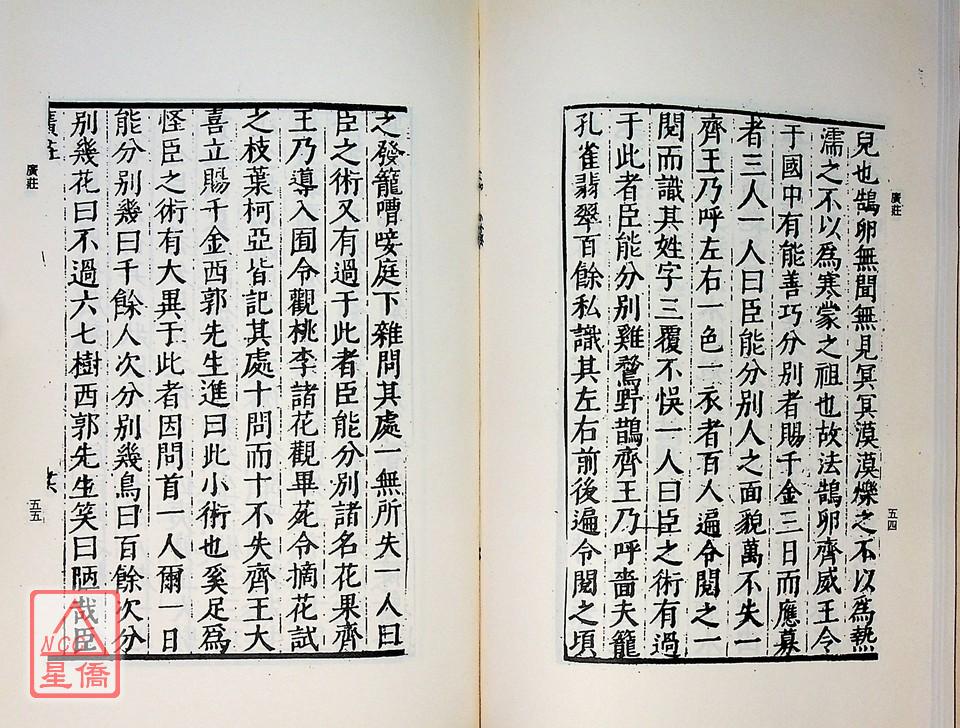 廣莊
五四
兒也鵠卵無聞無見冥冥漠漠爍之不以為熱
濡之不以爲寒蒙之祖也故法鵠卵齊威王令
于國中有能善巧分別者賜千金三日而應募
者三人一人曰臣能分別人之面貌萬不失一
齊王乃呼左右一色一衣者百人遍令閱之一
閱而識其姓字三覆不悞一人曰臣之術有過
于此者臣能分別雞鶩野鵲齊王乃呼嗇夫籠
孔雀翡翠百餘私識其左右前後遍令閱之頃
之發籠嘈唼庭下雜問其處一無所失一人曰
臣之術又有過于此者臣能分別諸名花果齊
王乃導入囿令觀桃李諸花觀畢死令摘花試
之枝葉柯亞皆記其處十問而十不失齊王大
喜立賜千金西郭先生進曰此小術也奚足爲
怪臣之術有大異于此者因問首一人爾一日
能分別幾曰千餘人次分別幾鳥曰百餘次分
別幾花曰不過六七樹西郭先生笑曰陋哉臣
廣莊
廣莊
五五
NCC
星僑